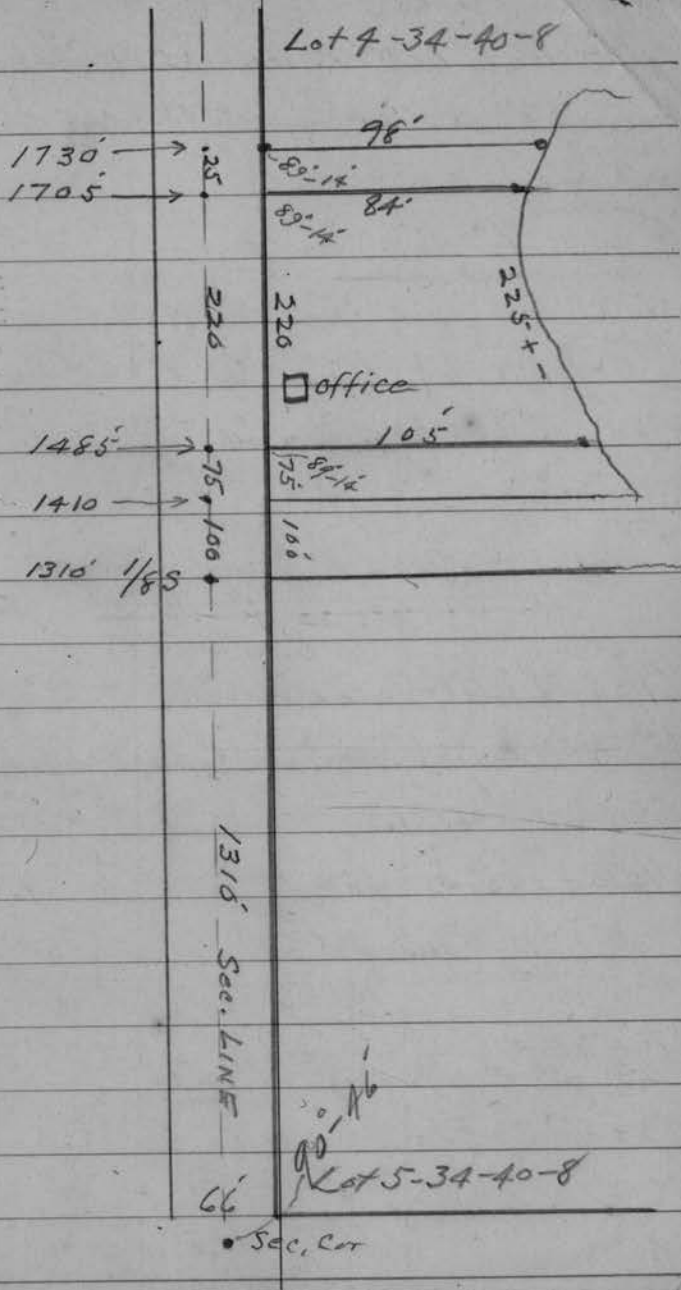 Lot 4-34-40-8
1730' .25 98'
89°-14'
1705' 84'
89°-14'
220 220 225 + -
office
1485' 105'
75 75' 89°-14'
1410
100 100'
1310' 1/8 S
1310' Sec. LINE
90°-46'
Lot 5-34-40-8
66'
Sec. Cor